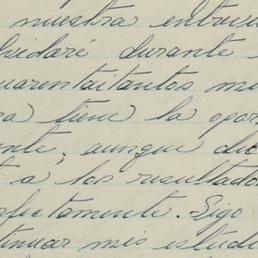 nuestra entrevi
lvidaré durante
uarentaitantos mi
ra tiene la opor
nte; aunque de
t a los resultado
rfectamente. Sigo
tinuar mis estudi